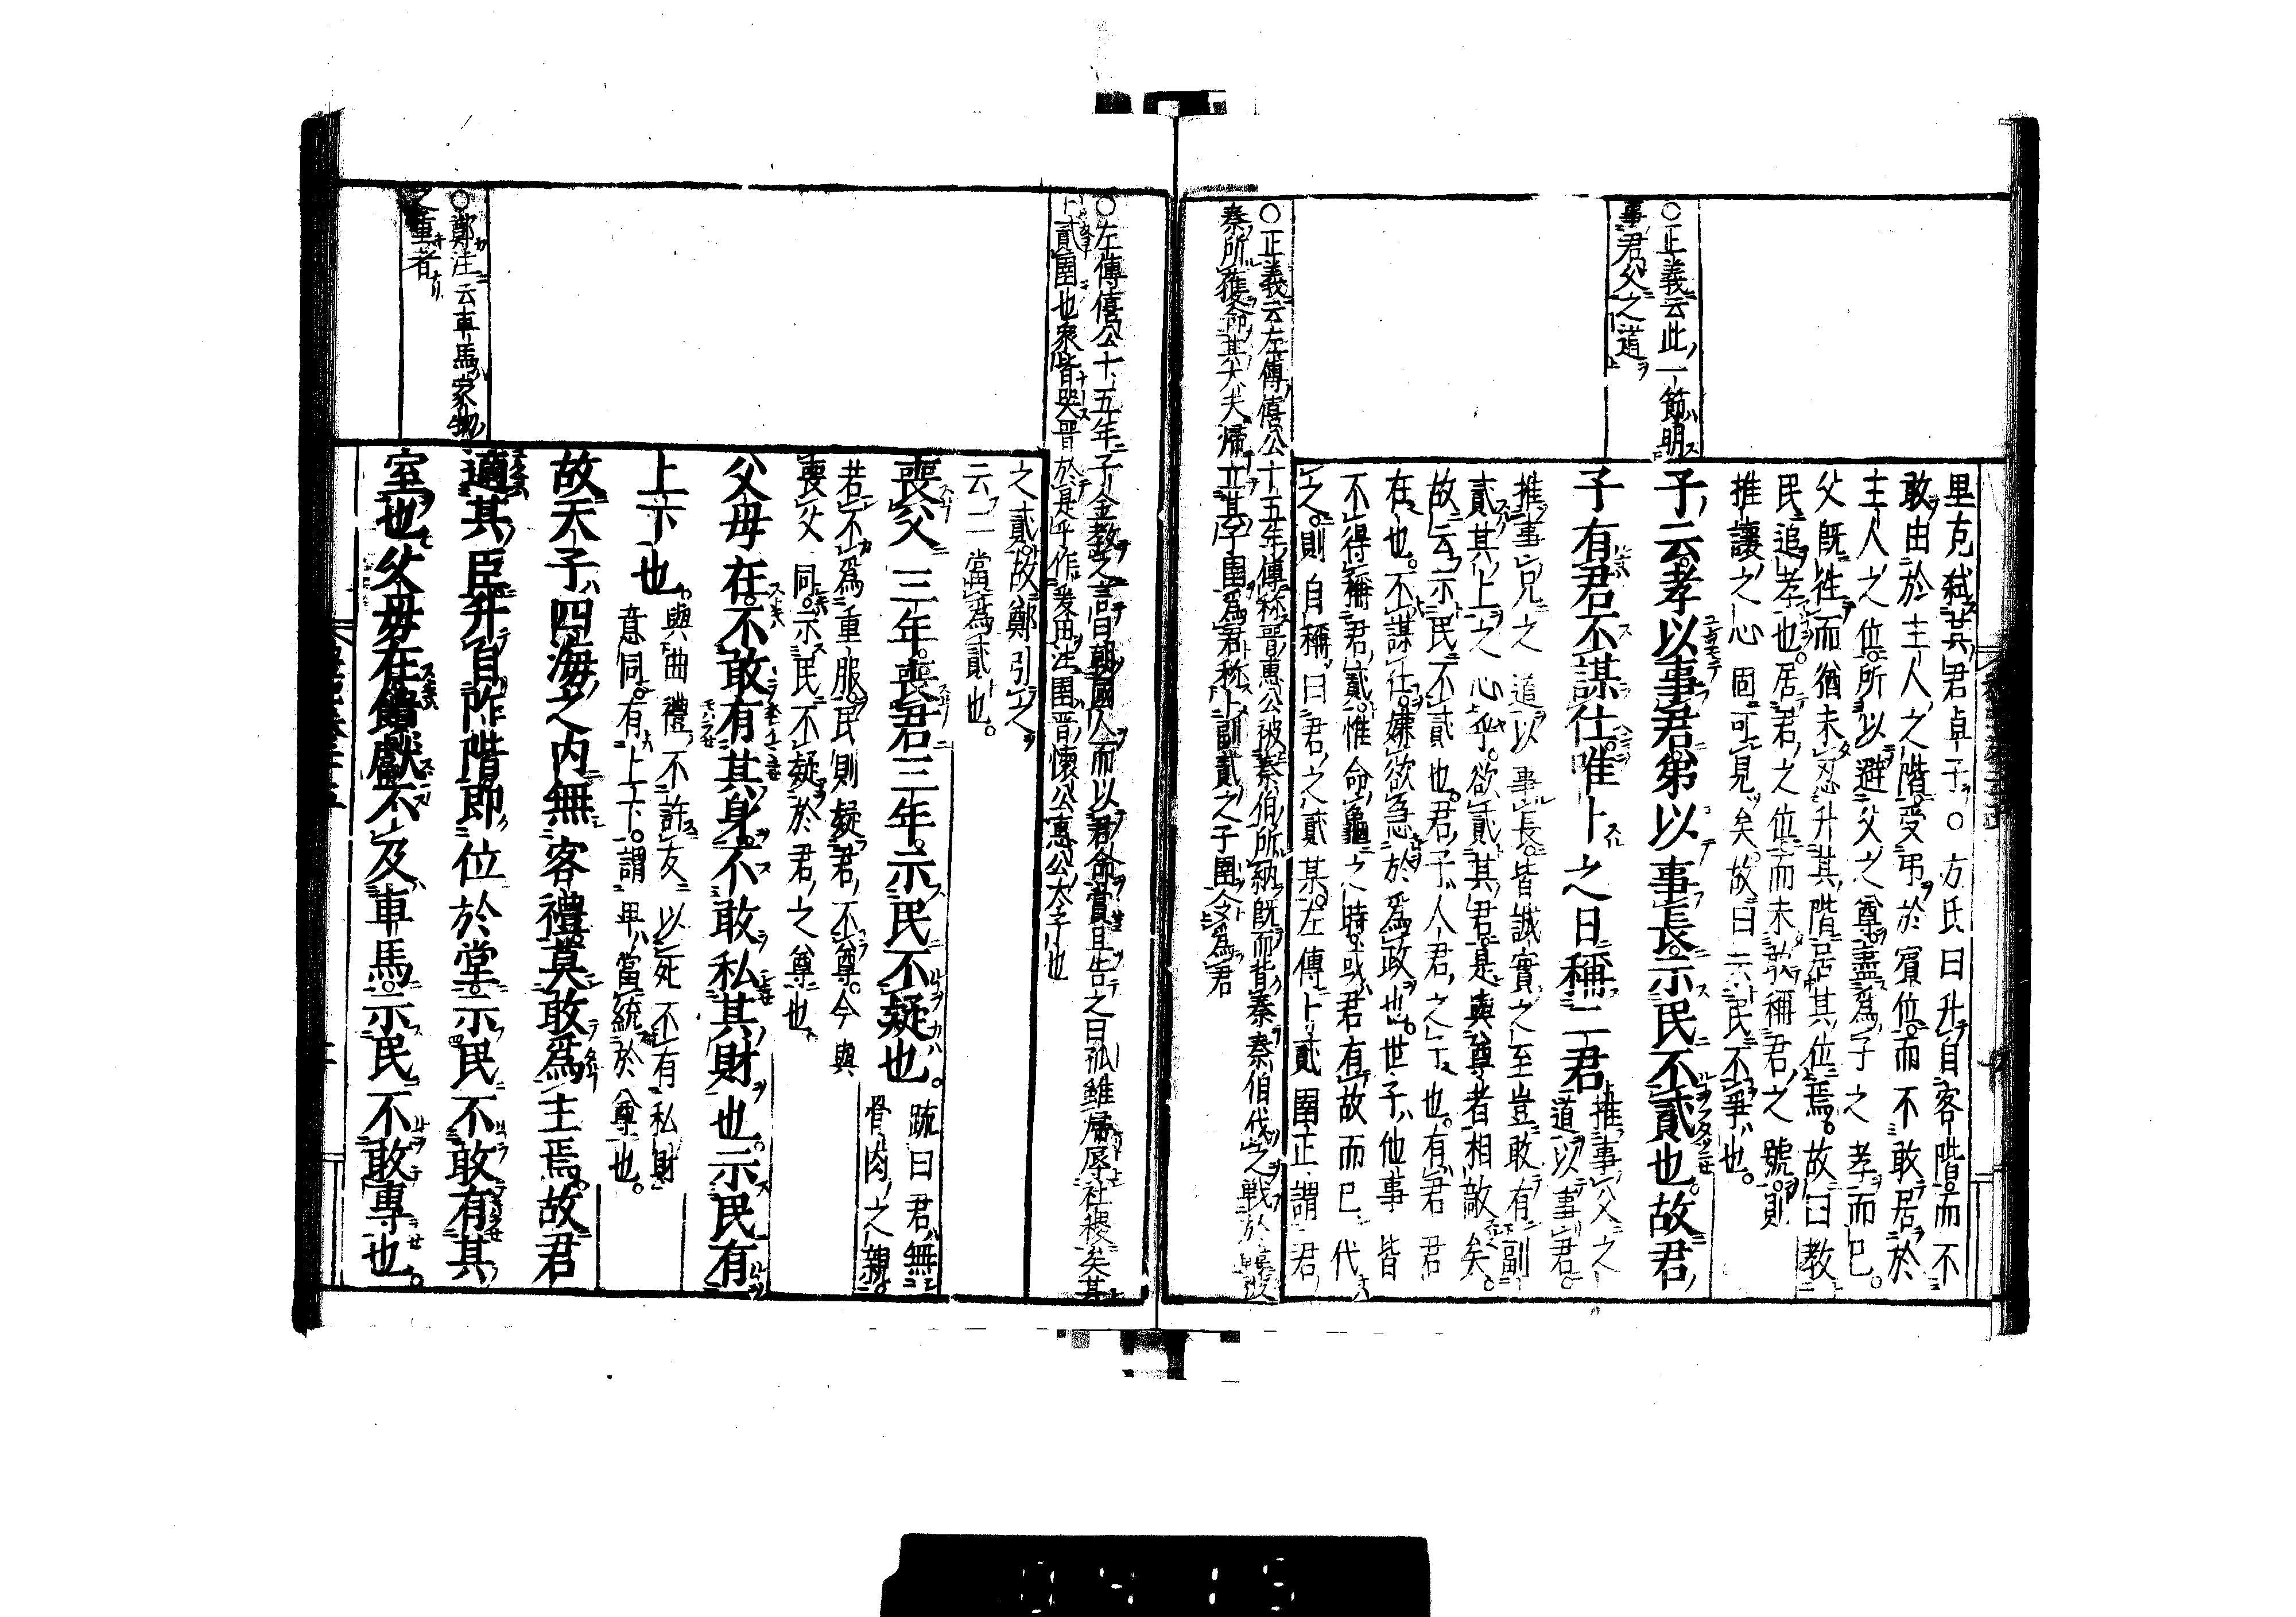 里克弑其君卓子○方氏曰升自客階而不
敢由於主人之階受弔於賓位而不敢居於
主人之位所以避父之尊盡爲子之孝而已。
父既往而猶未忍升其階居其位焉故曰教
民追孝也。居君之位而未敢稱君之號則
推讓之心固可見矣故曰示民不爭也。
○正義云此一節明
事君父之道
子云孝以事君弟以事長示民不貳也故君
子有君不謀仕唯卜之日稱二君
推事父之
道以事君。
推事兄之道以事長皆誠實之至豈敢有副
貳其上之心乎。欲貳其君是與尊者相敵矣。
故云示民不貳也。君子人君之子也。有君君
在也。不謀仕嫌欲急於爲政也。世子他事皆
不得稱君貳。惟命龜之時或君有故而已代
之。則自稱曰君之貳某。左傳卜貳圉正謂君
○正義云左傳僖公十五年傳称晋惠公被秦伯所納既而背秦秦伯伐之戰於韓被
秦所獲命其大夫歸立其子圉爲君称卜副貳之子圉令爲君
○左傳僖公十五年子金教之言曰朝國人而以君命賞且告之曰孤雖歸辱社稷矣其
卜貳圉也衆皆哭晋於是乎作爰田注圉晋懷公惠公大子也
之貳故鄭引之
云二當爲貳也。
喪父三年喪君三年示民不疑也。
疏曰君無
骨肉之親。
若不爲重服民則疑君不尊今與
喪父同示民不疑於君之尊也
父母在不敢有其身不敢私其財也。示民有
上下也。
與曲禮不許友以死不有私財
意同。有上下。謂卑當統於尊也。
故天子四海之内無客禮莫敢爲主焉。故君
適其臣升自阼階即位於堂示民不敢有其
○鄭注云車馬家物
之重者
室也父母在饋獻不及車馬示民不敢專也。